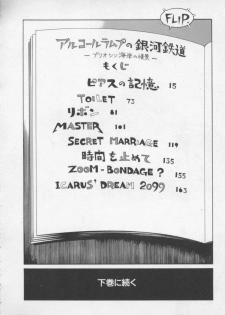 FLIP
アルコールランプの銀河鉄道
—プリオシン海岸の情景—
もくじ
ピアスの記憶 15
TOILET 73
リボン 81
MASTER 101
SECRET MARRIAGE 119
時間を止めて 135
ZOOM-BONDAGE? 155
ICARUS' DREAM 2099 163
下巻に続く